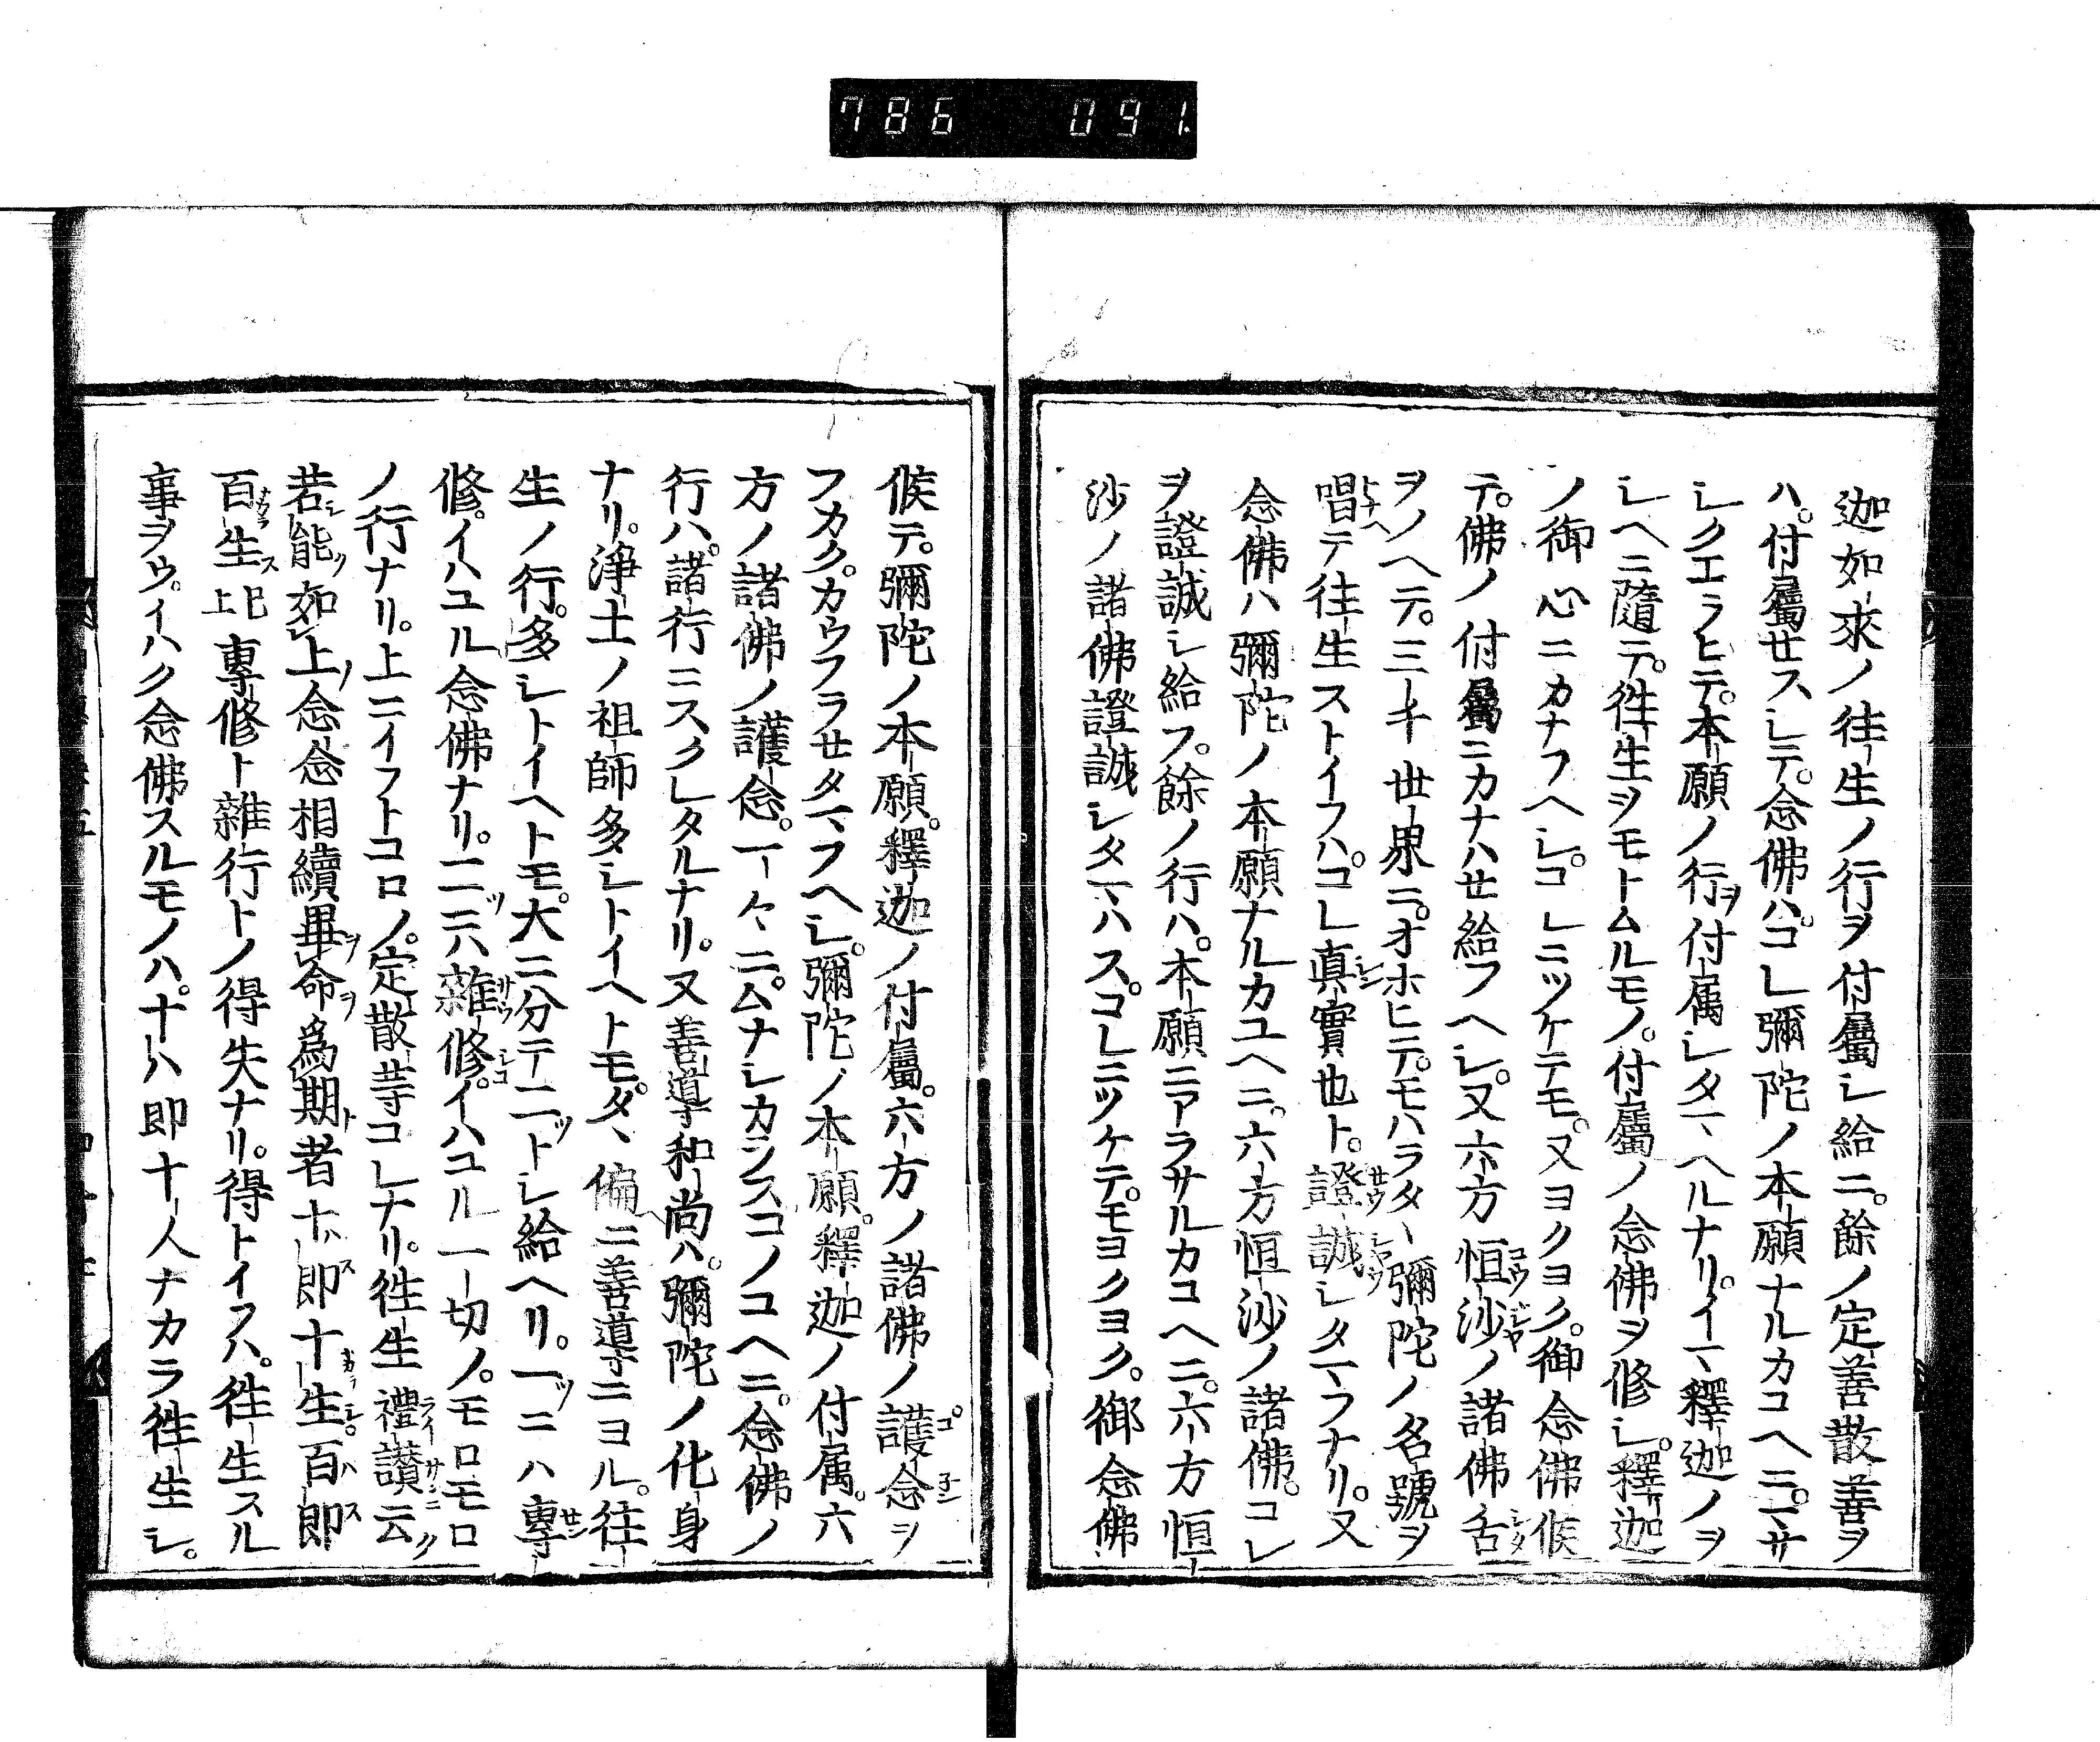 786 091.
迦如來ノ往生ノ行ヲ付屬シ給ニ。餘ノ定善散善ヲ
ハ。付屬セスシテ。念佛ハ。コレ彌陀ノ本願ナルカユヘニ。マサ
シクエラヒテ。本願ノ行ヲ付属シタマヘルナリ。イマ釋迦ノヲ
シヘニ隨テ。徃生ヲモトムルモノ。付屬ノ念佛ヲ修シ。釋迦
ノ御心ニカナフヘシ。コレニツケテモ。又ヨクヨク。御念佛候
テ。佛ノ付屬ニカナハセ給フヘシ。又六方恒沙ノ諸佛舌
ヲノヘテ。三千世界ニ。オホヒテ。モハラタヽ彌陀ノ名號ヲ
唱テ往生ストイフハ。コレ真實也ト。證誠シタマフナリ。又
念佛ハ彌陀ノ本願ナルカユヘニ。六方恒沙ノ諸佛。コレ
ヲ證誠シ給フ。餘ノ行ハ。本願ニアラサルカユヘニ。六方恒
沙ノ諸佛證誠シタマハス。コレニツケテ。モヨクヨク。御念佛
候テ。彌陀ノ本願。釋迦ノ付屬。六方ノ諸佛ノ護念ヲ
フカク。カウフラせタマフヘシ。彌陀ノ本願。釋迦ノ付属。六
方ノ諸佛ノ護念。一々ニ。ムナシカラスコノユヘニ。念佛ノ
行ハ。諸行ニスクレタルナリ。又善導和尚ハ。彌陀ノ化身
ナリ。浄土ノ祖師多シトイヘトモ。タヽ偏ニ善導ニヨル。往
生ノ行。多シトイヘトモ。大ニ分テ二ツトシ給ヘリ。一ツニハ專
修。イハユル念佛ナリ。二ツニハ雜修。イハユル一切ノ。モロモロ
ノ行ナリ。上ニイフトコロノ。定散等コレナリ。徃生禮讃云ク
若能如上念念相續畢命爲期者十ハ即十生百ハ即
百生ス 已上 專修ト雜行トノ得失ナリ。得トイフハ。徃生スル
事ヲウ。イハク念佛スルモノハ。十ハ即十人ナカラ徃生シ。